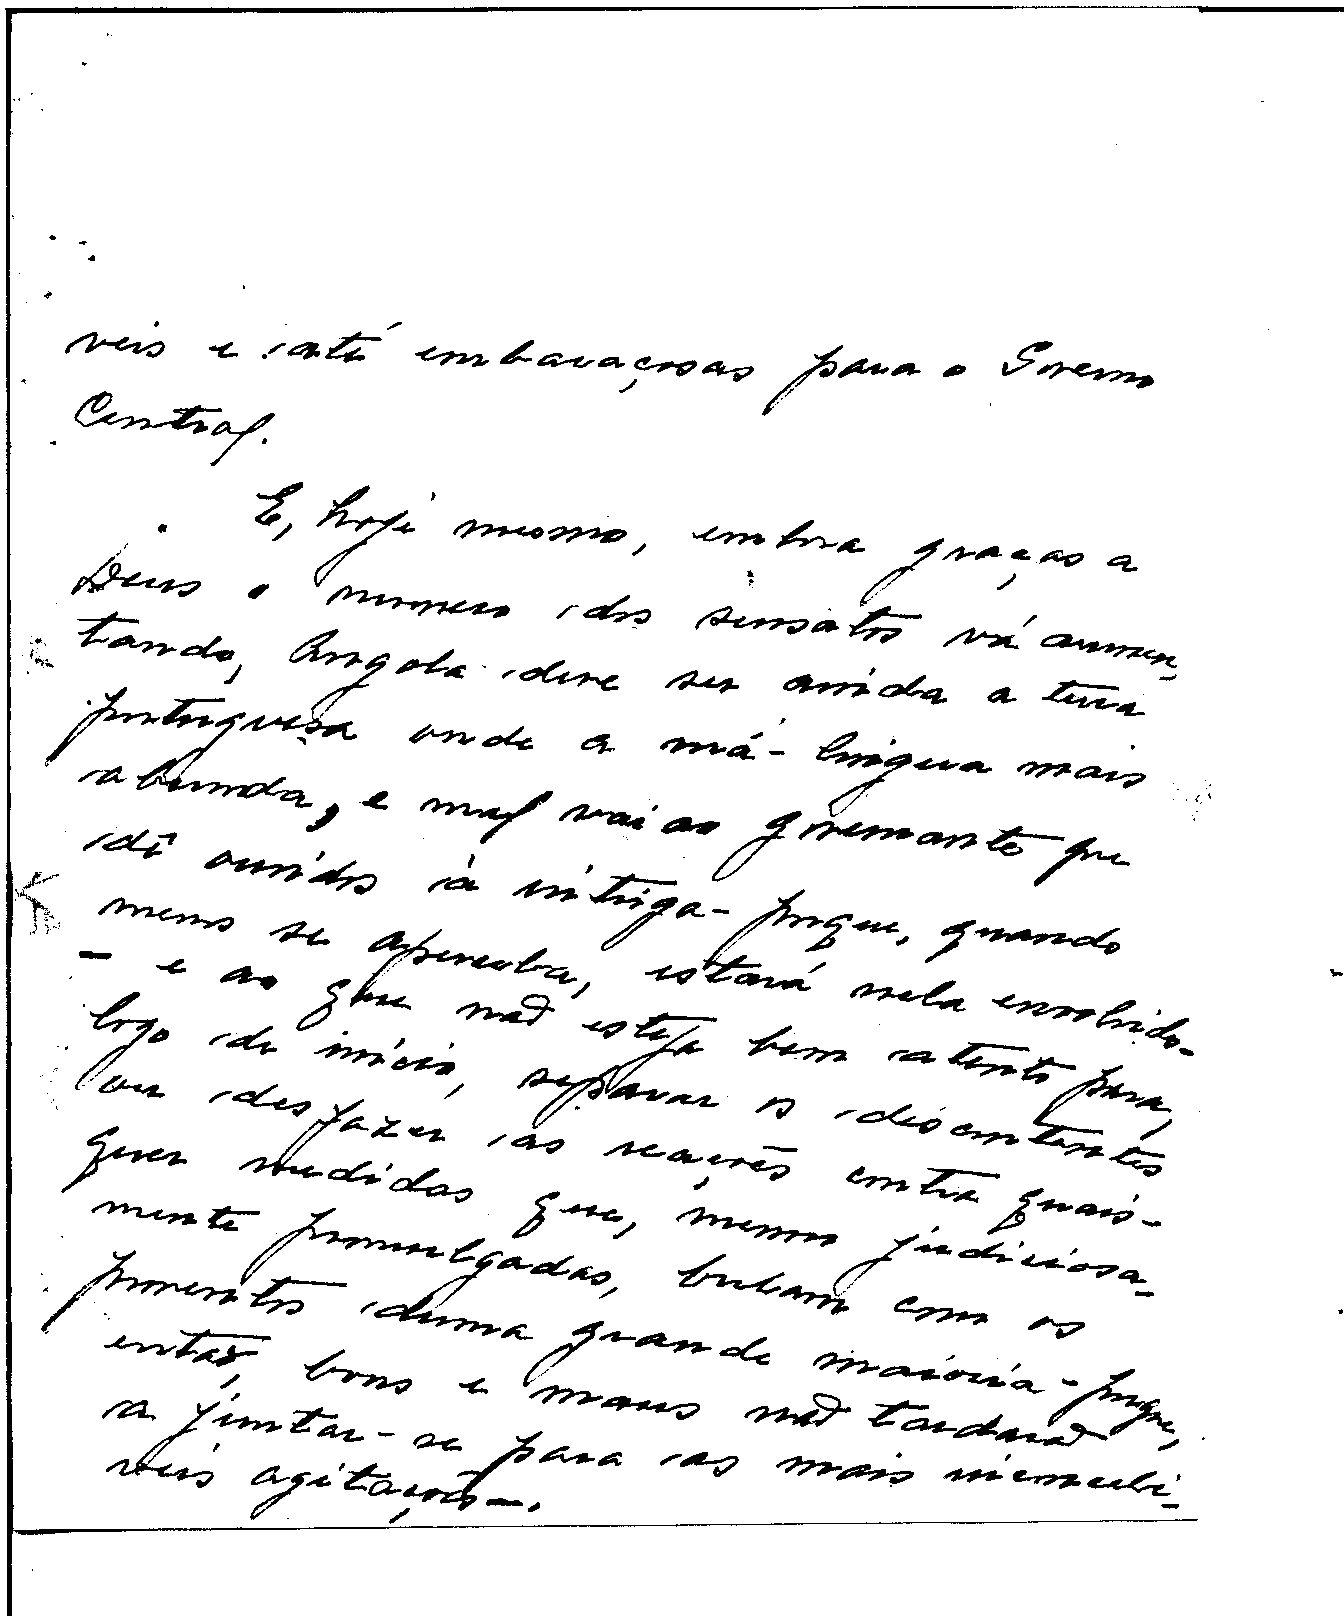 veis e até embaraçosas para o Governo
Central.
E, hoje mesmo, embora graças a
Deus o numero dos sensatos vá aumen-
tando, Angola deve ser ainda a terra
portuguesa onde a má-lingua mais
abunda, e mal vai ao governante que
dê ouvidos à intriga - porque, quando
menos se aperceba, estará nela envolvido -
- e ao que não esteja bem atento para,
logo de inicio, separar os discontentes
ou desfazer as reações contra quais-
quer medidas que, mesmo judiciosa-
mente promulgadas, bulam com os
proventos duma grande maioria - porque,
então, bons e maus não tardarão
a juntar-se para as mais incrubi-
veis agitações -.